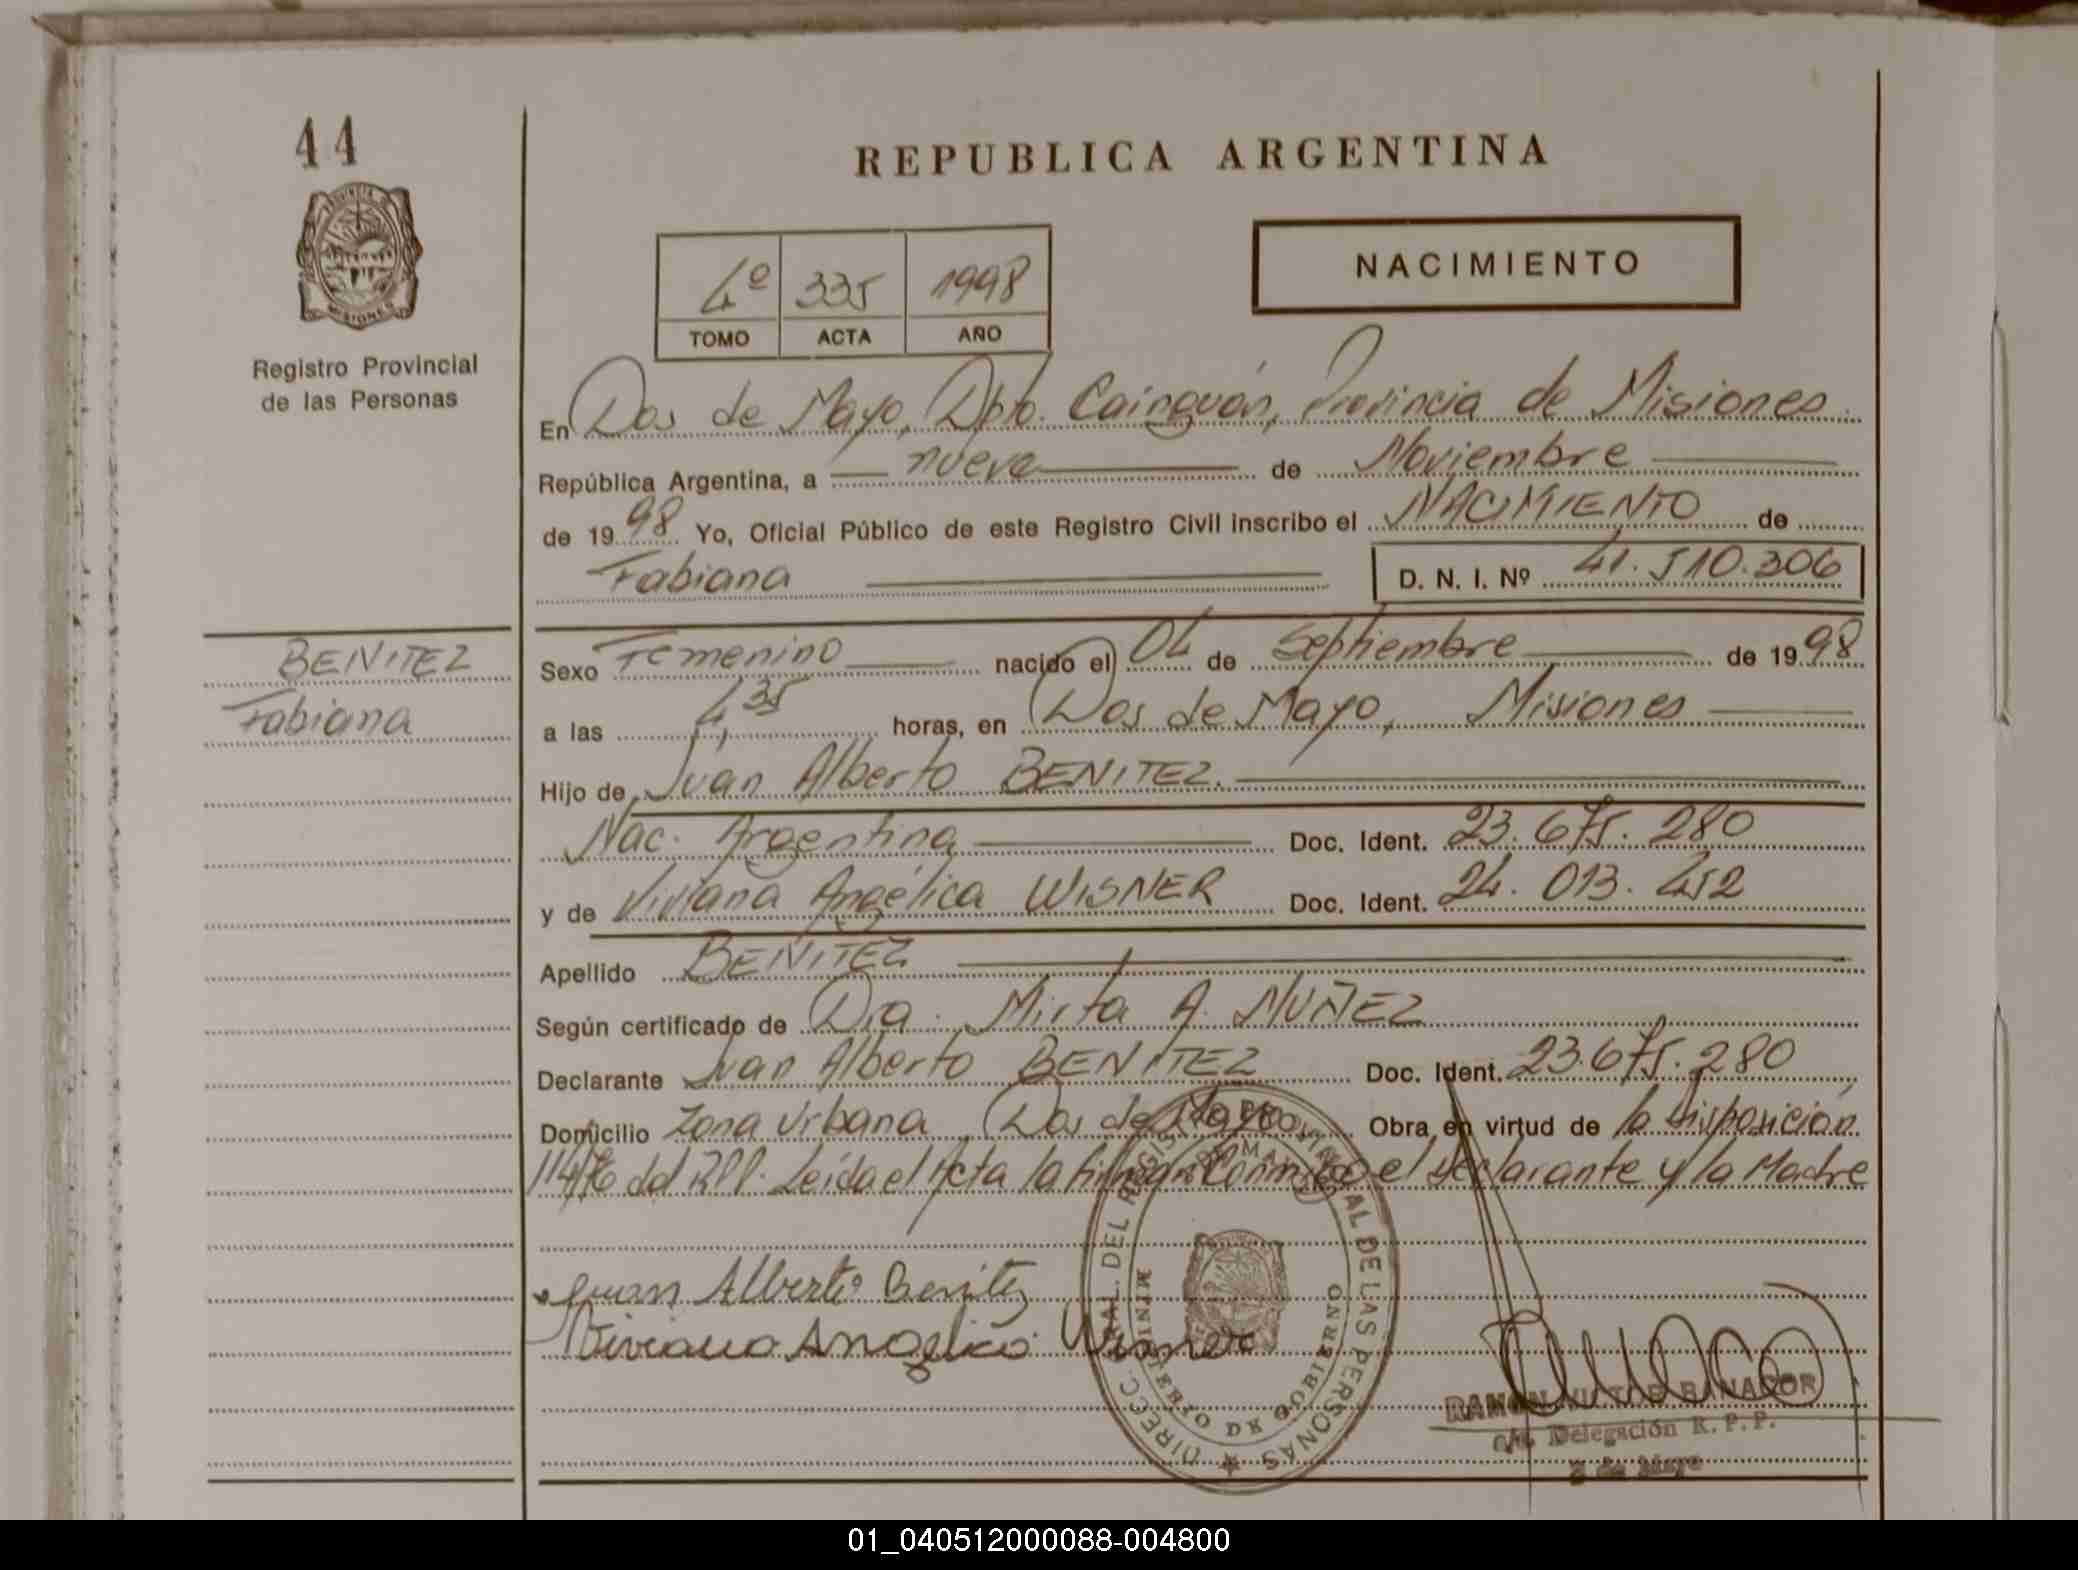 44
REPUBLICA ARGENTINA
PROVINCIA DE
MISIONES
Registro Provincial
de las Personas
4º 335 1998
TOMO ACTA AÑO
NACIMIENTO
En Dos de Mayo, Dpto. Cainguás, Provincia de Misiones
República Argentina, a nueve de Noviembre
de 1998 Yo, Oficial Público de este Registro Civil inscribo el NACIMIENTO de
Fabiana D. N. I. Nº 41.510.306
BENITEZ
Fabiana
Sexo Femenino nacido el 04 de Septiembre de 1998
a las 4,35 horas, en Dos de Mayo, Misiones
Hijo de Juan Alberto BENITEZ.
Nac. Argentina Doc. Ident. 23.675.280
y de Viviana Angélica WISNER Doc. Ident. 24.013.452
Apellido BENITEZ
Según certificado de Dra. Mirta A. NUÑEZ
Declarante Juan Alberto BENITEZ Doc. Ident. 23.675.280
Domicilio Zona Urbana Dos de Mayo Obra en virtud de la Disposición
114/76 del RPP. Leída el Acta la firman Conmigo el declarante y la Madre
Juan Alberto Benitez
Viviana Angelica Wisner
DIRECC. GRAL. DEL REGISTRO PROVINCIAL DE LAS PERSONAS
MINISTERIO DE GOBIERNO
RAMON VICTOR BANACOR
Delegación R. P. P.
2 de Mayo
01_040512000088-004800